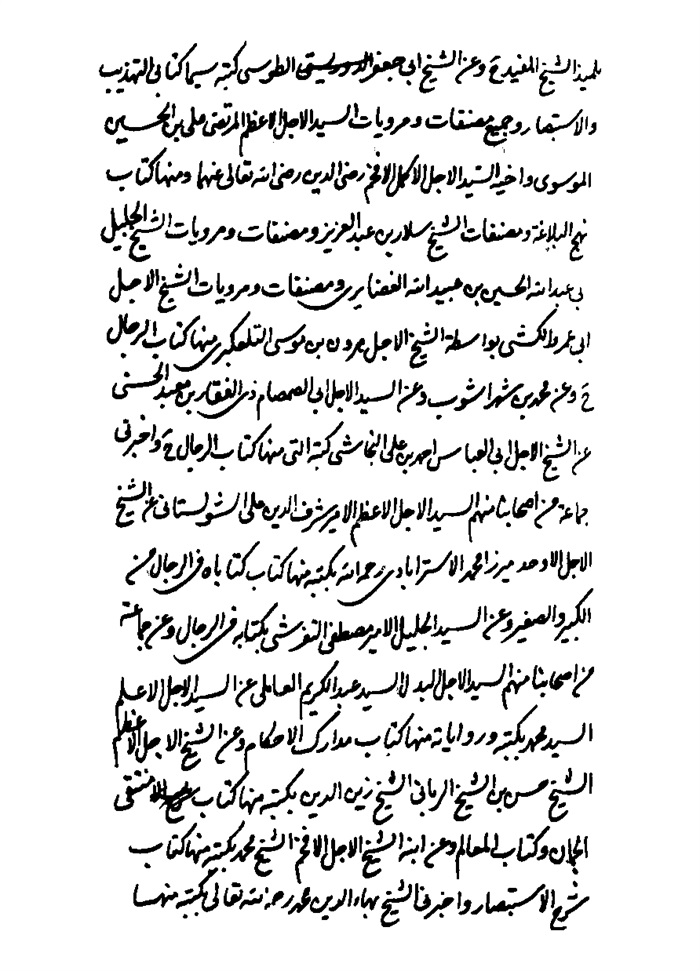 تلميذ الشيخ المفيد ح وعن الشيخ ابى جعفر الطوسى كتبه سيما كتابى التهذيب
والاستبصار وجميع مصنفات ومرويات السيد الاجل الاعظم المرتضى على بن الحسين
الموسوى واخيه السيد الاجل الاكمل الافخم رضى الدين رضى الله تعالى عنهما ومنها كتاب
نهج البلاغة ومصنفات الشيخ سلار بن عبد العزيز ومصنفات ومرويات الشيخ الجليل
ابى عبد الله الحسين بن عبيد الله الغضايرى ومصنفات ومرويات الشيخ الاجل
ابى عمرو الكشى بواسطة الشيخ الاجل هرون بن موسى التلعكبرى منها كتاب الرجال
ح وعن محمد بن شهراشوب وعن السيد الاجل ابى الصمصام ذى الفقار بن معبد الحسنى
عن الشيخ الاجل ابى العباس احمد بن على النجاشى كتبه التى منها كتاب الرجال ح واخبرنى
جماعة من اصحابنا منهم السيد الاجل الاعظم الامير شرف الدين على الشولستانى عن الشيخ
الاجل الاوحد ميرزا محمد الاسترابادى رحمه الله بكتبه منها كتاب كتاباه فى الرجال من
الكبير والصغير وعن السيد الجليل الامير مصطفى التفرشى بكتابه فى الرجال وعن جماعة
من اصحابنا منهم السيد الاجل البدل السيد عبد الكريم العاملى عن السيد الاجل الاعلم
السيد محمد بكتبه ورواياته منها كتاب مدارك الاحكام وعن الشيخ الاجل الاعظم
الشيخ حسن بن الشيخ الربانى الشيخ زين الدين بكتبه منها كتاب منتقى
الجمان وكتاب المعالم وعن ابنه الشيخ الاجل الافخم الشيخ محمد بكتبه منها كتاب
شرح الاستبصار واخبرنى الشيخ بهاء الدين محمد رحمه الله تعالى بكتبه منها